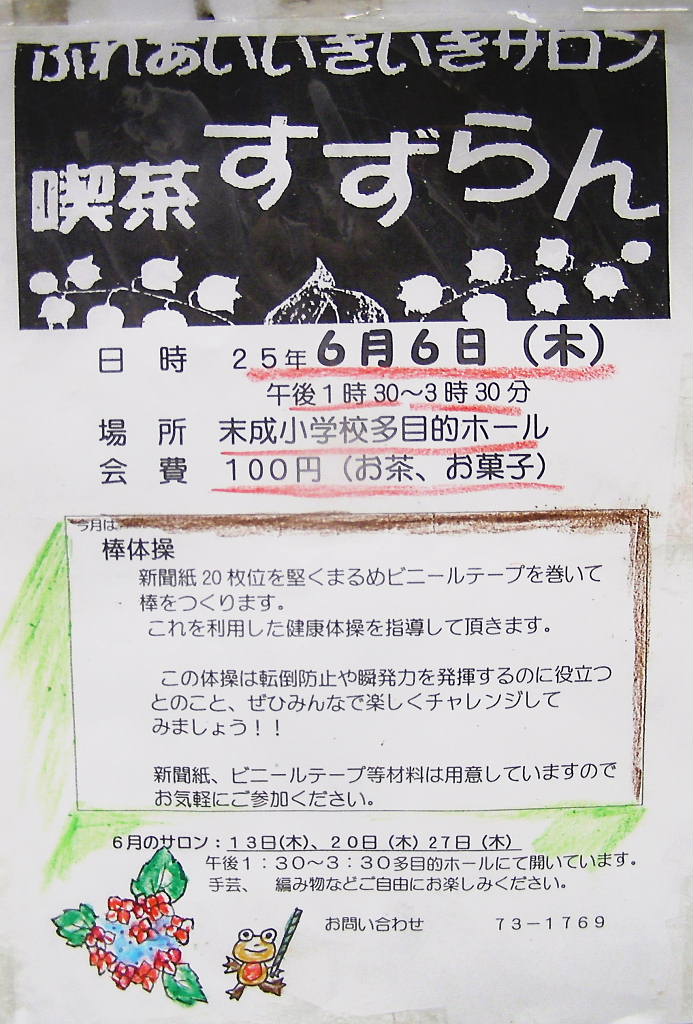 ふれあいいきいきサロン
喫茶すずらん
日 時 25年6月6日(木)
午後1時30~3時30分
場 所 末成小学校多目的ホール
会 費 100円(お茶、お菓子)
今月は
棒体操
新聞紙20枚位を堅くまるめビニールテープを巻いて
棒をつくります。
これを利用した健康体操を指導して頂きます。
この体操は転倒防止や瞬発力を発揮するのに役立つ
とのこと、ぜひみんなで楽しくチャレンジして
みましょう!!
新聞紙、ビニールテープ等材料は用意していますので
お気軽にご参加ください。
6月のサロン:13日(木)、20日(木)27日(木)
午後1:30~3:30多目的ホールにて開いています。
手芸、 編み物などご自由にお楽しみください。
お問い合わせ 73-1769